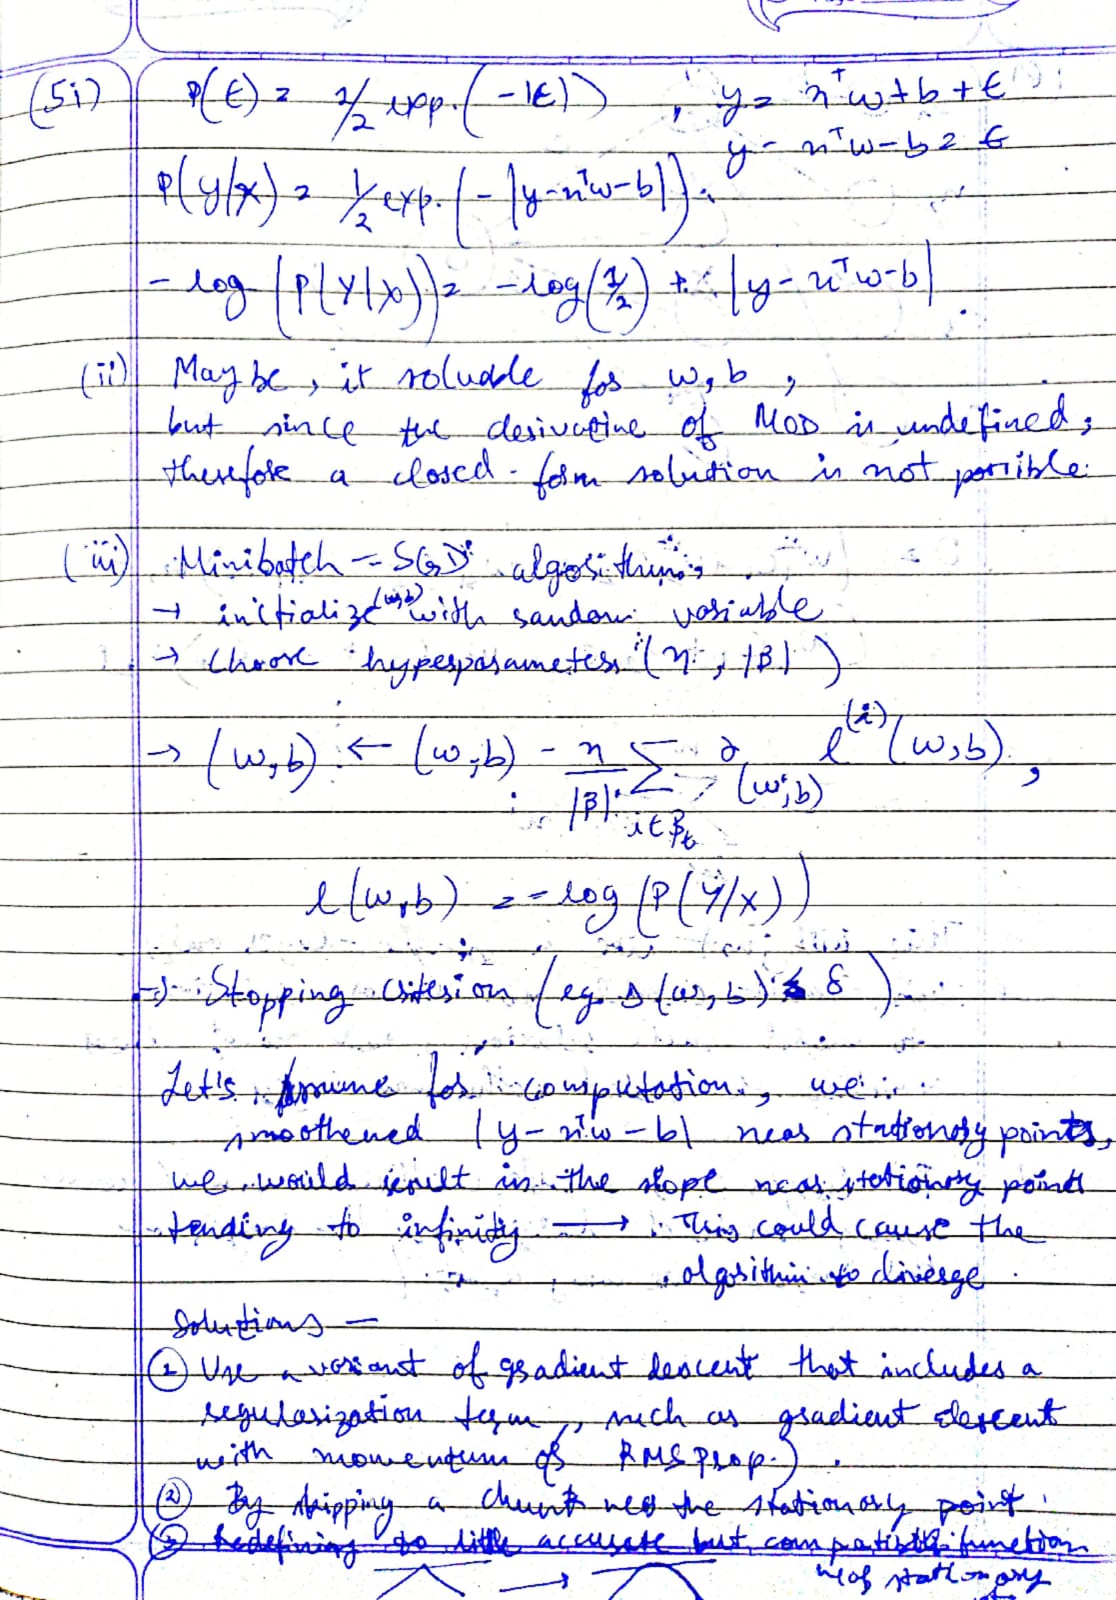 (5i) P(ϵ) = 1/2 exp. (-|ϵ|) , y = x^T w + b + ϵ
y - x^T w - b = ϵ
P(y/x) = 1/2 exp. (- |y - x^T w - b|).
- log (P(Y|x)) = - log(1/2) + |y - x^T w - b|.
(ii) Maybe, it soluable for w, b ,
but since the derivative of MOD is undefined,
therefore a closed-form solution is not possible.
(iii) Minibatch - SGD algorithm,
→ initialize (w,b) with random variable
→ choose hyperparameters (η , |β|)
→ (w,b) ← (w,b) - η/|β| Σ_{i∈β_t} ∂_{(w,b)} l^{(i)} (w,b) ,
l(w,b) = -log (P(Y/X))
→ Stopping criterion (eg. Δ(w,b) ≤ δ).
Let's Assume for computation, we
smoothened |y - x^T w - b| near stationary points,
we would result in the slope near stationary points
tending to infinity → This could cause the
algorithm to diverge.
Solutions -
① Use a variant of gradient descent that includes a
regularization term, such as gradient descent
with momentum or RMSprop.) .
② By skipping a chunk near the stationary point.
③ Redefining to little accurate but compatible function
near stationary